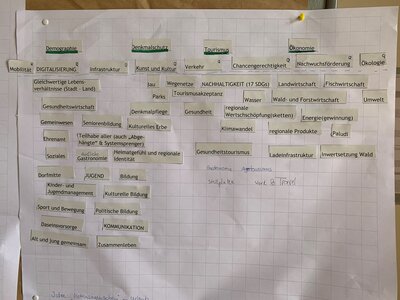 Demographie Denkmalschutz Tourismus Ökonomie
Mobilität DIGITALISIERUNG Infrastruktur Kunst und Kultur Verkehr Chancengerechtigkeit Nachwuchsförderung Ökologie
Gleichwertige Lebensverhältnisse (Stadt - Land) Wegenetze NACHHALTIGKEIT (17 SDGs) Landwirtschaft Fischwirtschaft
Parks Tourismusakzeptanz Wasser Wald- und Forstwirtschaft Umwelt
Gesundheitswirtschaft Denkmalpflege Gesundheit regionale Wertschöpfung(sketten) Energie(gewinnung)
Gemeinwesen Seniorenbildung Kulturelles Erbe Klimawandel regionale Produkte (Paludi
Ehrenamt (Teilhabe aller (auch „Abgehängte“ & Systemsprenger)
Soziales Gastronomie Heimatgefühl und regionale Identität Gesundheitstourismus Ladeinfrastruktur Inwertsetzung Wald
Dorfmitte JUGEND Bildung
Kinder- und Jugendmanagement Kulturelle Bildung
Sport und Bewegung Politische Bildung
Daseinsvorsorge KOMMUNIKATION
Alt und Jung gemeinsam Zusammenleben